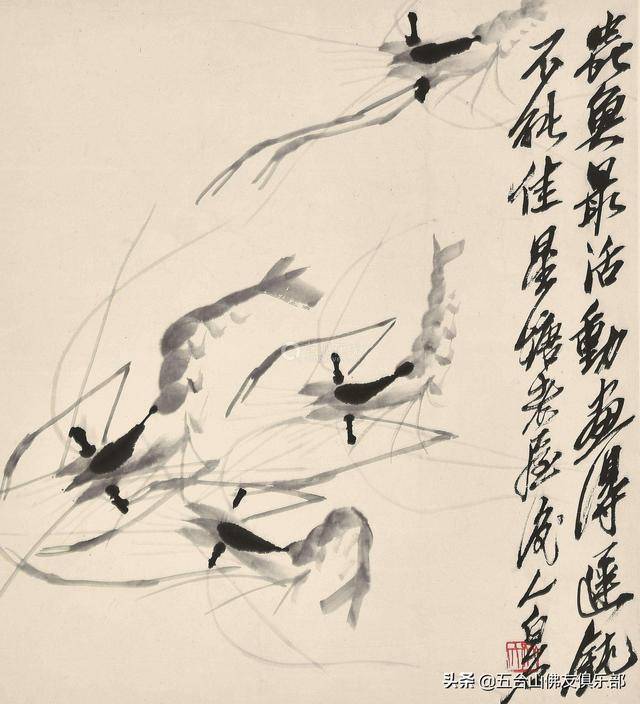 蟲魚最活動畫得遲鈍
不能佳星塘老屋後人白石
头条 @五台山佛友俱乐部